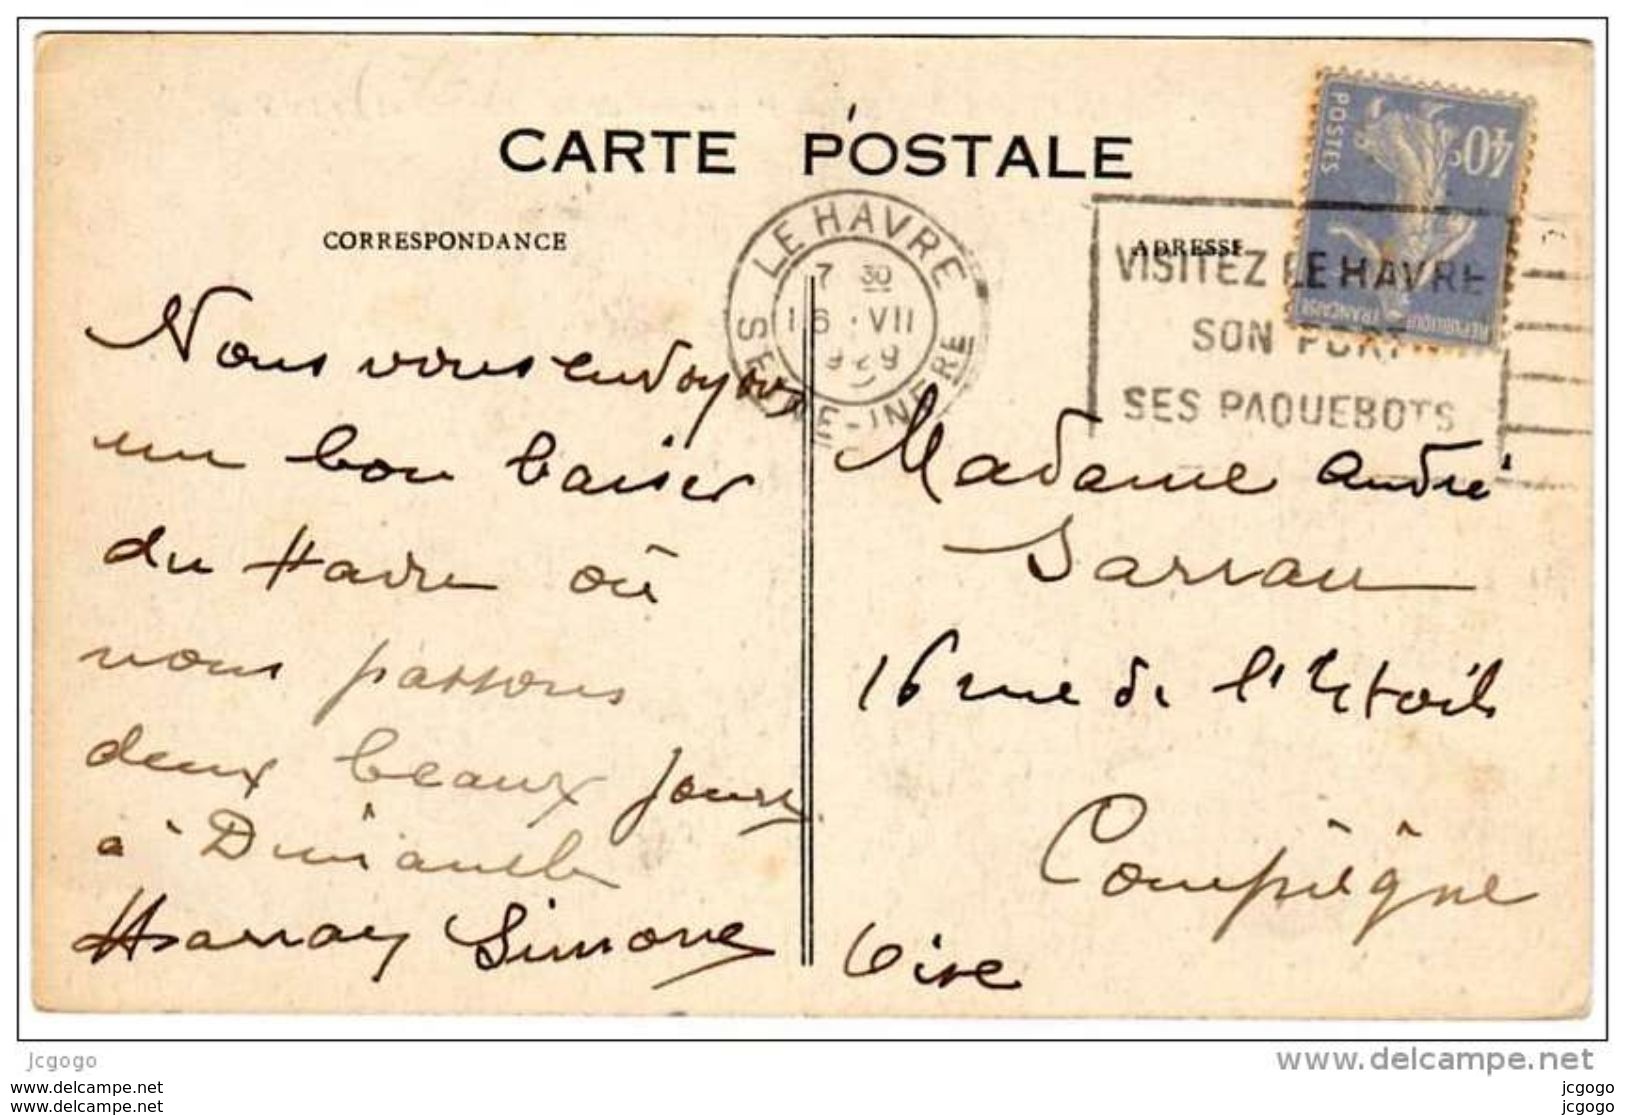 CARTE POSTALE
CORRESPONDANCE
ADRESSE
LE HAVRE
7 30
16 · VII
1929
SEINE-INFRE
VISITEZ LE HAVRE
SON PORT
SES PAQUEBOTS
POSTES
40c
REPUBLIQUE FRANÇAISE
Nous vous envoyons
un bon baiser
du Havre où
nous passons
deux beaux jours
à Dimanche
Simone
Madame André
Sarrau
16 rue de l'Etoile
Compiègne
Oise
Jcgogo
www.delcampe.net
www.delcampe.net
www.delcampe.net
jcgogo
jcgogo